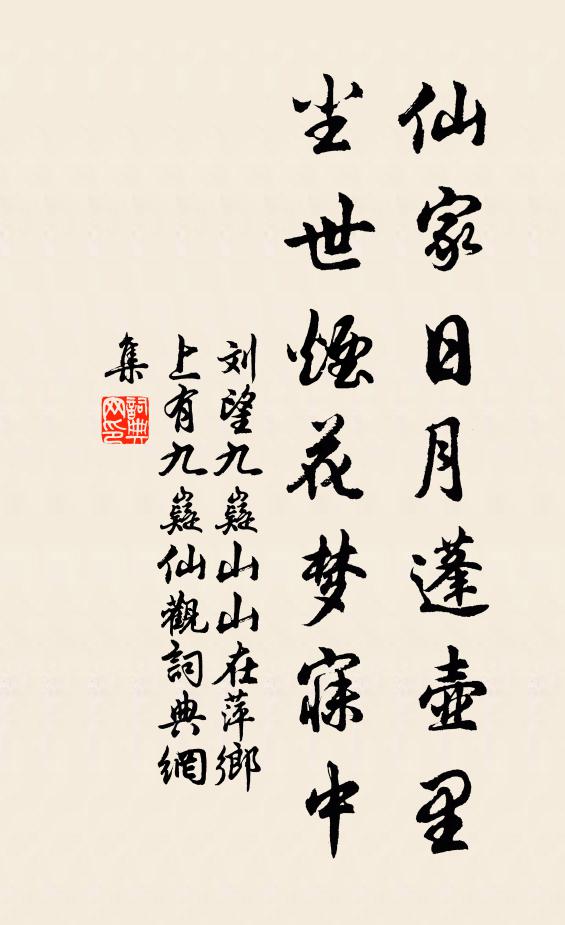 仙家日月蓬壶里
尘世煙花梦寐中
刘望九嶷山山在萍鄉
上有九嶷仙觀詞典網
集
詞典
网印